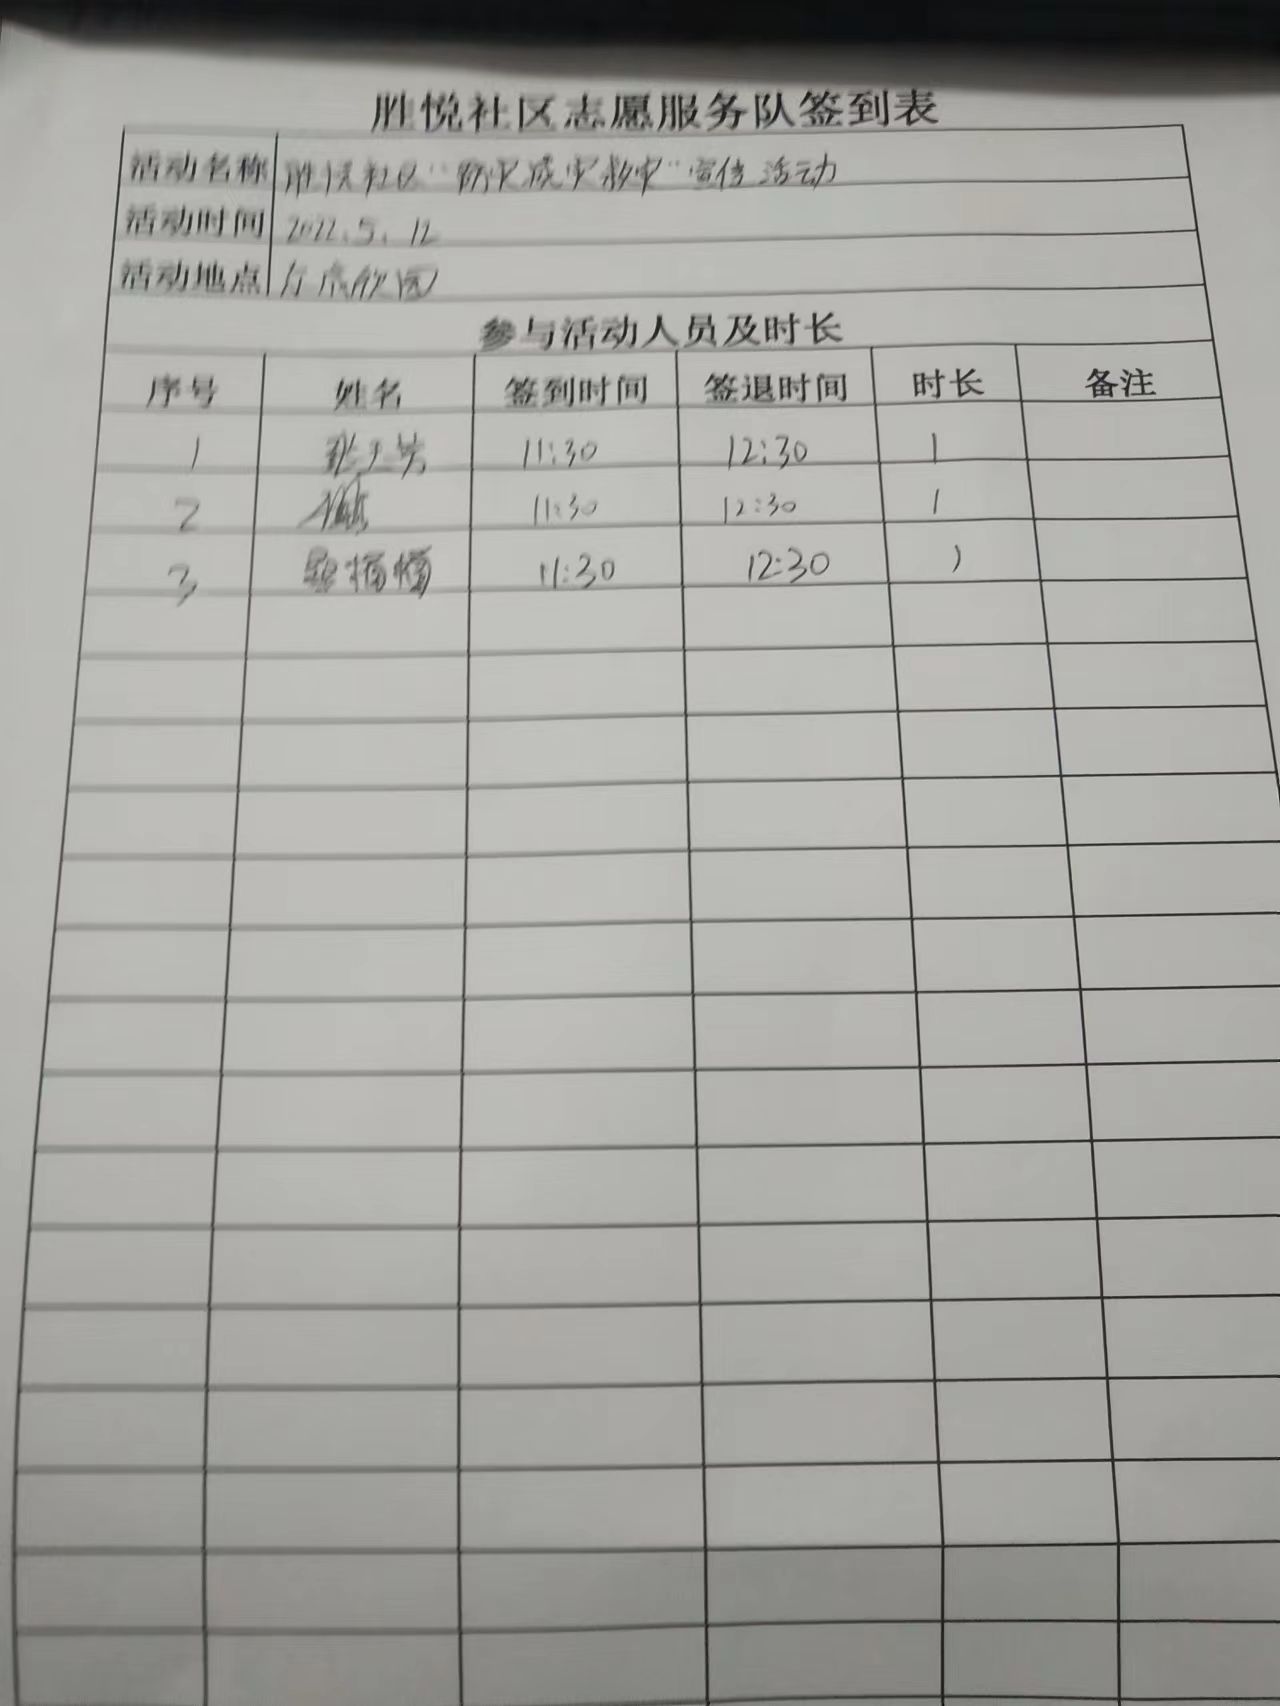 胜悦社区志愿服务队签到表
活动名称 胜悦社区“防灾减灾救灾”宣传活动
活动时间 2022.5.12
活动地点
参与活动人员及时长
序号 姓名 签到时间 签退时间 时长 备注
1 11:30 12:30 1
2 11:30 12:30 1
3 11:30 12:30 1